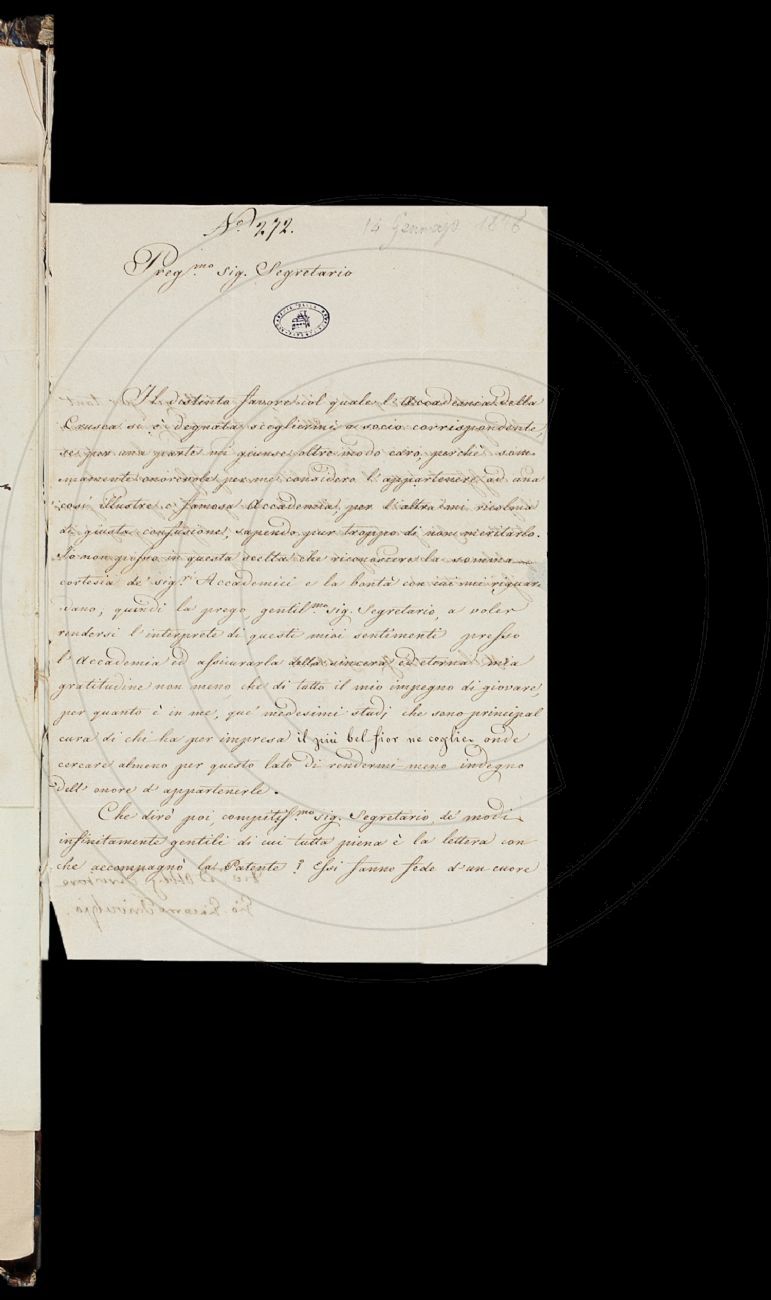 N.o 272.
14 Gennajo 18
Preg.mo Sig. Segretario
Il distinto favore col quale l'Accademia della
Crusca si è degnata scegliermi a socio corrispondente,
se per una parte mi giunse oltre modo caro, perchè som-
mamente onorevole per me considero l'appartenere ad una
così illustre e famosa Accademia, per l'altra mi ricolma
di giusta confusione, sapendo pur troppo di non meritarlo.
Io non posso in questa scelta che riconoscere la somma
cortesia de' sig.ri Accademici e la bontà con cui mi riguar-
dano, quindi la prego gentil.mo Sig. Segretario, a voler
rendersi l'interprete di questi miei sentimenti presso
l'Accademia ed assicurarla della sincera ed eterna mia
gratitudine non meno che di tutto il mio impegno di giovare,
per quanto è in me, que' medesimi studj che sono principal
cura di chi ha per impresa il più bel fior ne coglie, onde
cercare almeno per questo lato di rendermi meno indegno
dell'onore d'appartenerle.
Che dirò poi, compitiss.mo Sig. Segretario, de' modi
infinitamente gentili di cui tutta piena è la lettera con
che accompagnò la Patente? Essi fanno fede d'un cuore